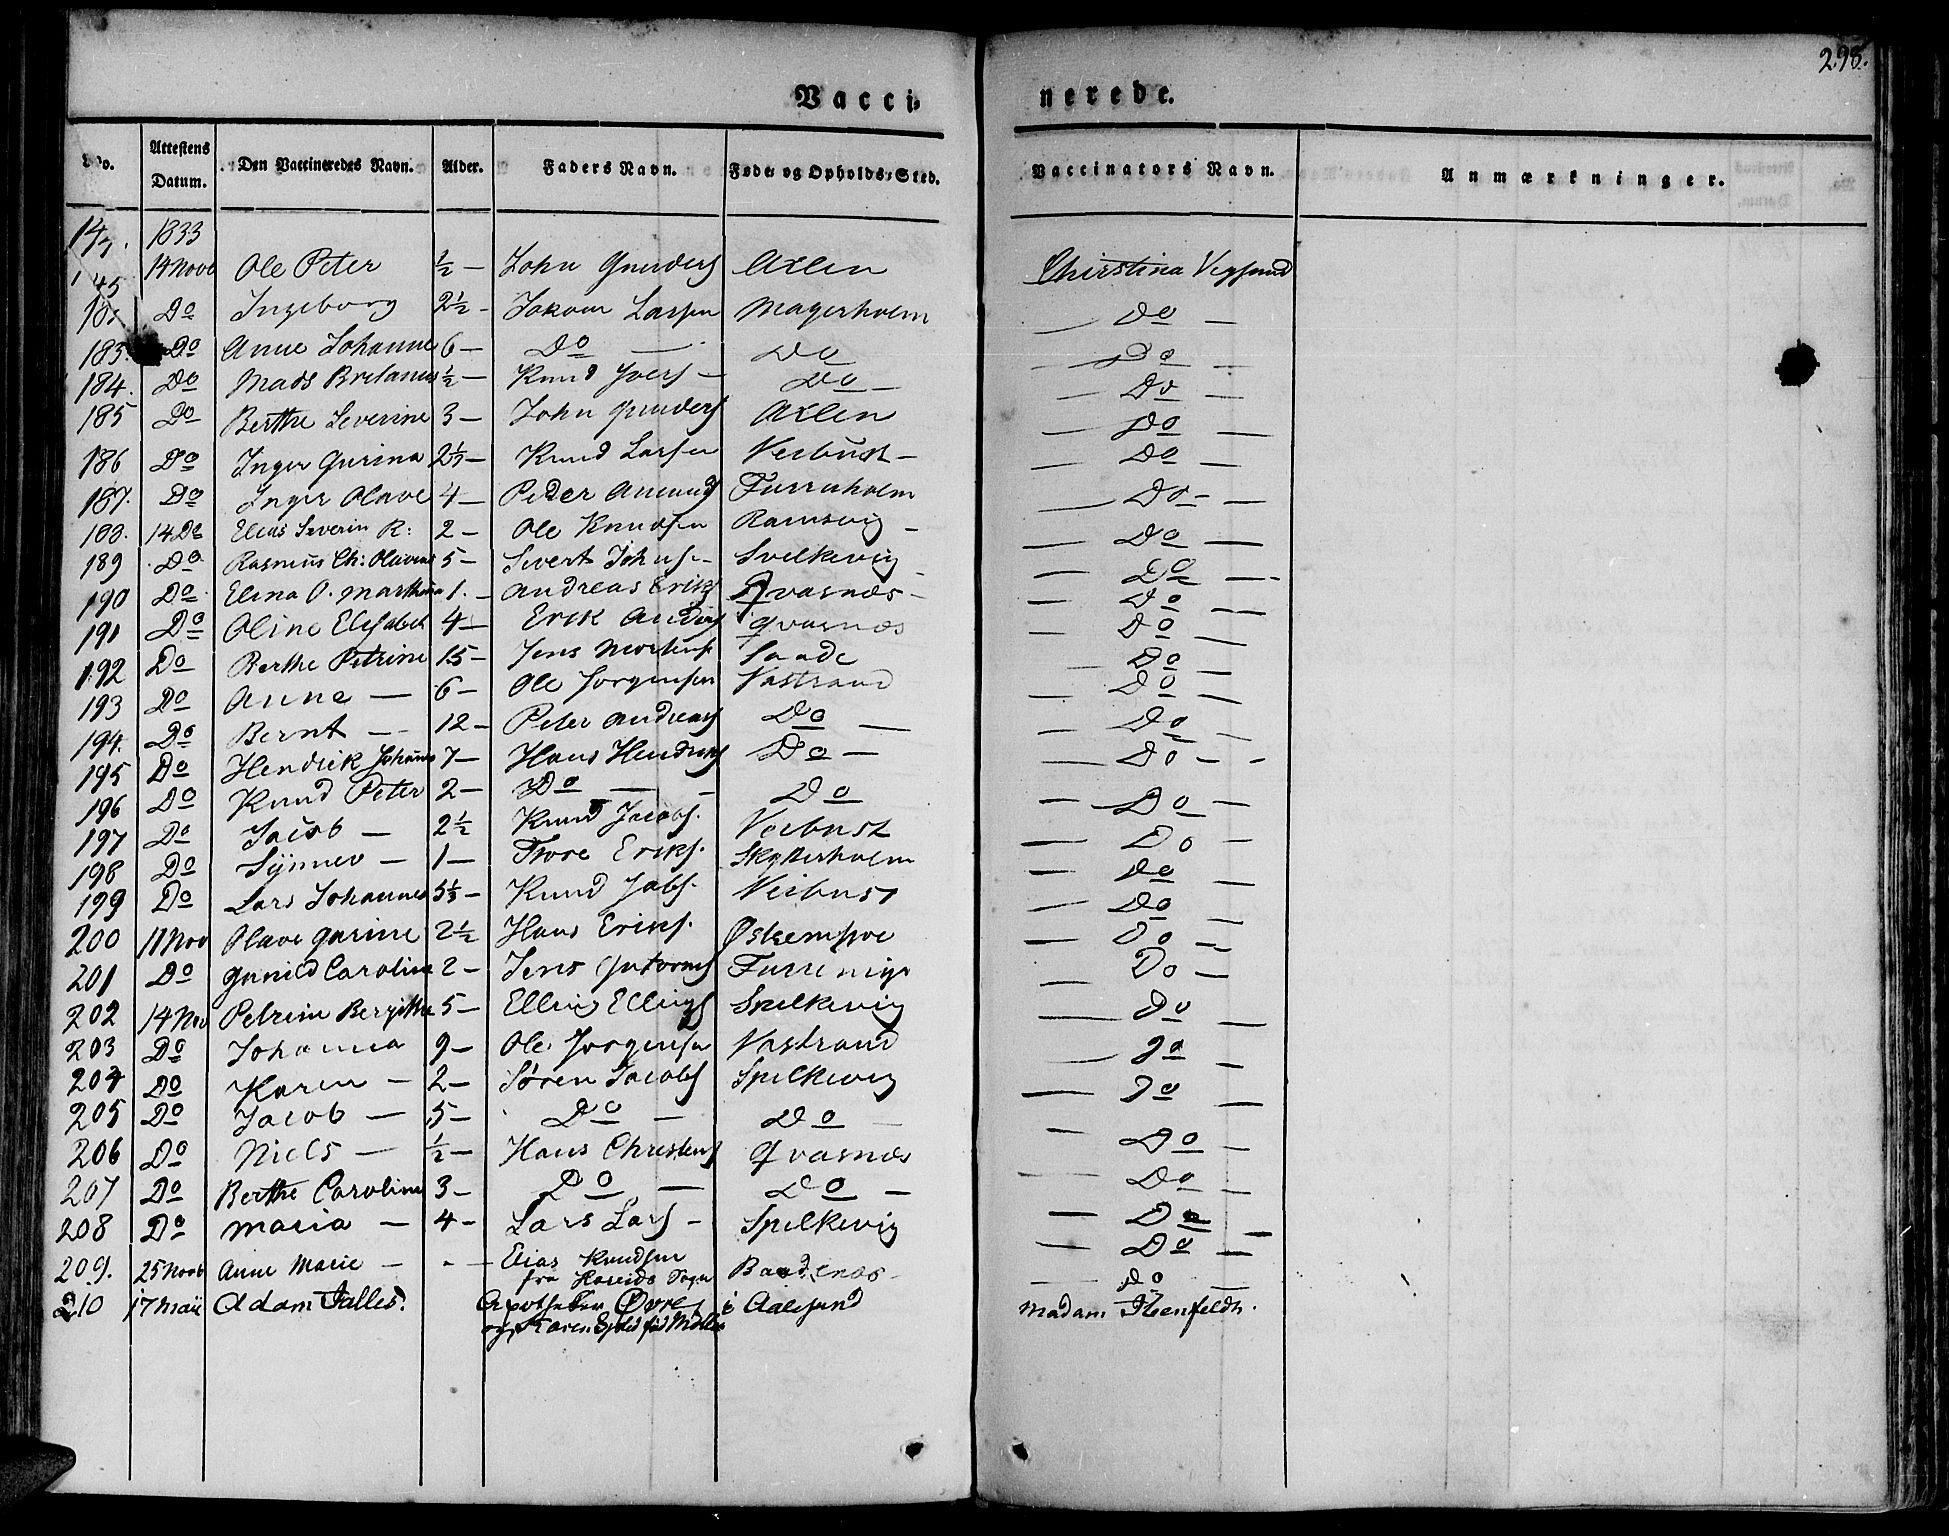 298.
Vacci- nerede.
No. Attestens Datum. Den Vaccineredes Navn. Alder. Faders Navn. Føde- og Opholds-Sted. Vaccinators Navn. Anmærkninger.
1833
14 Novb Ole Peter ½ - John Axlen Christina Vegsund
Do Ingeborg 2½ - Lassen Magerholm Do
183. Do Anne Johanne 6 - Do Do Do
184. Do Mads ½ - Knud Ivers - Do - Do
185 Do Berthe Severine 3 - John Axlen Do
186 Do Inger Gurina 2½ - Knud Larsen Veibust - Do
187. Do Inger Olave 4 - Peder Amund Furrnholm Do
188. 14 Do Elias Severin R: 2 - Ole Knudsen Ramsvig - Do
189 Do Rasmus Ch: Olavus 5 - Sivert Johns - Spilkevig Do
190 Do Elena O. Marthina 1. - Andreas Eriks Qvasnæs - Do
191 Do Oline Elisabet 4 - Erik Anders Qvasnæs Do
192 Do Berthe Petrine 15 - Jens Do
193 Do Anne - 6 - Ole Jørgensen Vastrand Do
194. Do Bernt - 12 - Peter Andreas Do Do
195 Do Hendrik Johannes 7 - Hans Hendriks Do - Do
196 Do Knud Peter 2 - Do Do Do
197 Do Jacob - 2½ Knud Jacobs. Veibust Do
198 Do Synnev - 1 - Tore Eriks. Skytterholm Do
199 Do Lars Johannes 5½ - Knud Jabs. Veibust Do
200 11 Nov Olave Gurine 2½ Hans Eriks. Do
201 Do Gunild Caroline 2 - Jens Do
202 14 Nov Petrine Bergithe 5 - Elling Ellings Spilkevig Do
203 Do Johanna 9 - Ole Jørgensen Vastrand Do
204 Do Karen - 2 - Søren Jacobs Spilkevig Do
205 Do Jacob - 5 - Do Do Do
206 Do Niels - ½ - Hans Christens Qvasnæs Do
207 Do Berthe Caroline 3 - Do Do - Do
208 Do Maria - 4 - Lars Lars - Spilkevig Do
209. 25 Novb Anne Marie - - Elias Knudsen Do
fra Hareids Sogn
210 17 Maii Adam Falles. Apotheker Øvre i Aalesund Madam Steenfeldt.
og Karen